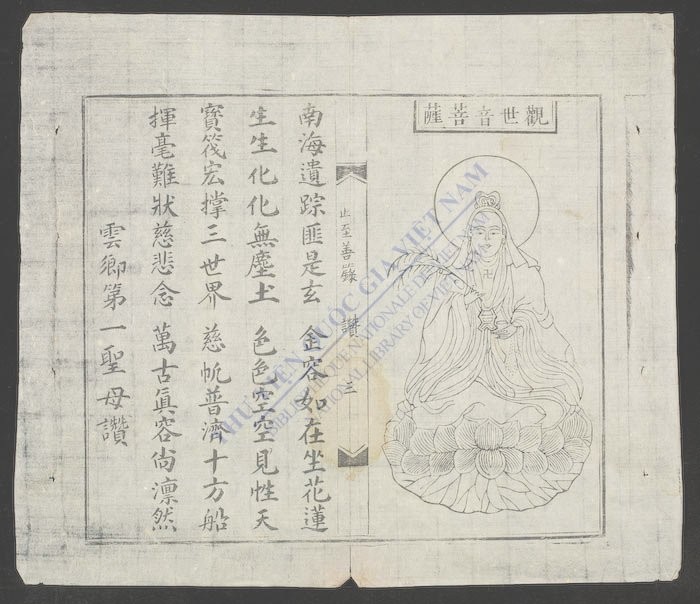 觀世音菩薩
止至善錄 讚 三
南海遺踪匪是玄 金容如在坐花蓮
生生化化無塵土 色色空空見性天
寶筏宏撑三世界 慈帆普濟十方船
揮毫難狀慈悲念 萬古眞容尙凛然
雲鄉第一聖母讚
THƯ VIỆN QUỐC GIA VIỆT NAM
BIBLIOTHEQUE NATIONALE DU VIETNAM
NATIONAL LIBRARY OF VIETNAM